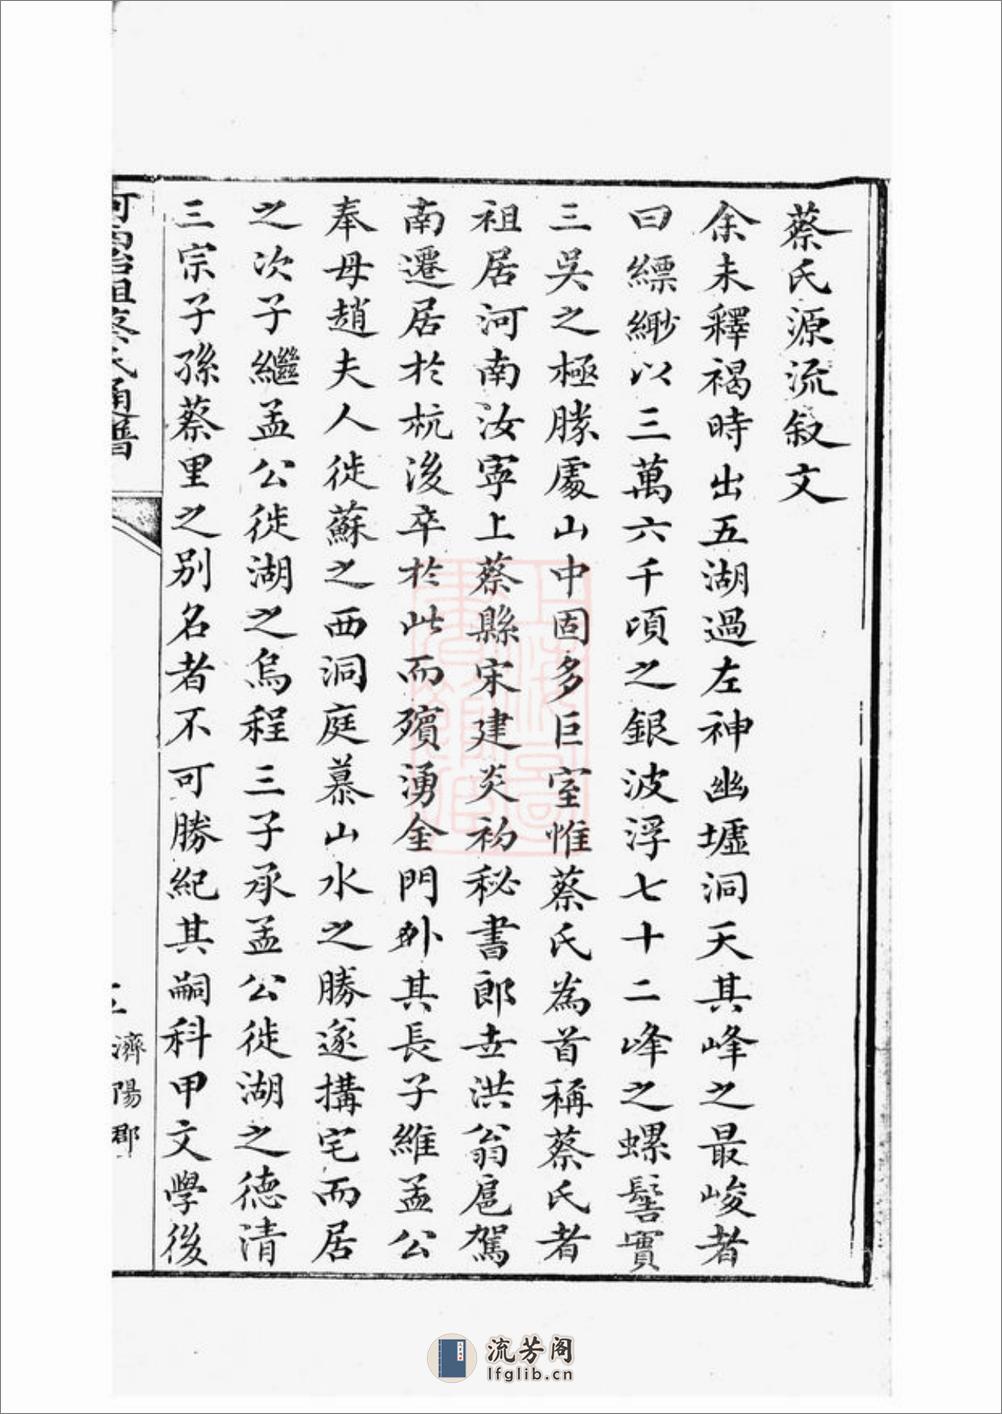 蔡氏源流叙文
余未釋褐時出五湖過左神幽墟洞天其峰之最峻者
曰縹緲以三萬六千頃之銀波浮七十二峰之螺髻實
三吳之極勝處山中固多巨室惟蔡氏為首稱蔡氏者
祖居河南汝寧上蔡縣宋建炎初秘書郎世洪翁扈駕
南遷居於杭後卒於此而殯湧金門外其長子維孟公
奉母趙夫人徙蘇之西洞庭慕山水之勝遂搆宅而居
之次子繼孟公徙湖之烏程三子承孟公徙湖之德清
三宗子孫蔡里之别名者不可勝紀其嗣科甲文學後
濟陽郡
流芳阁
lfglib.cn